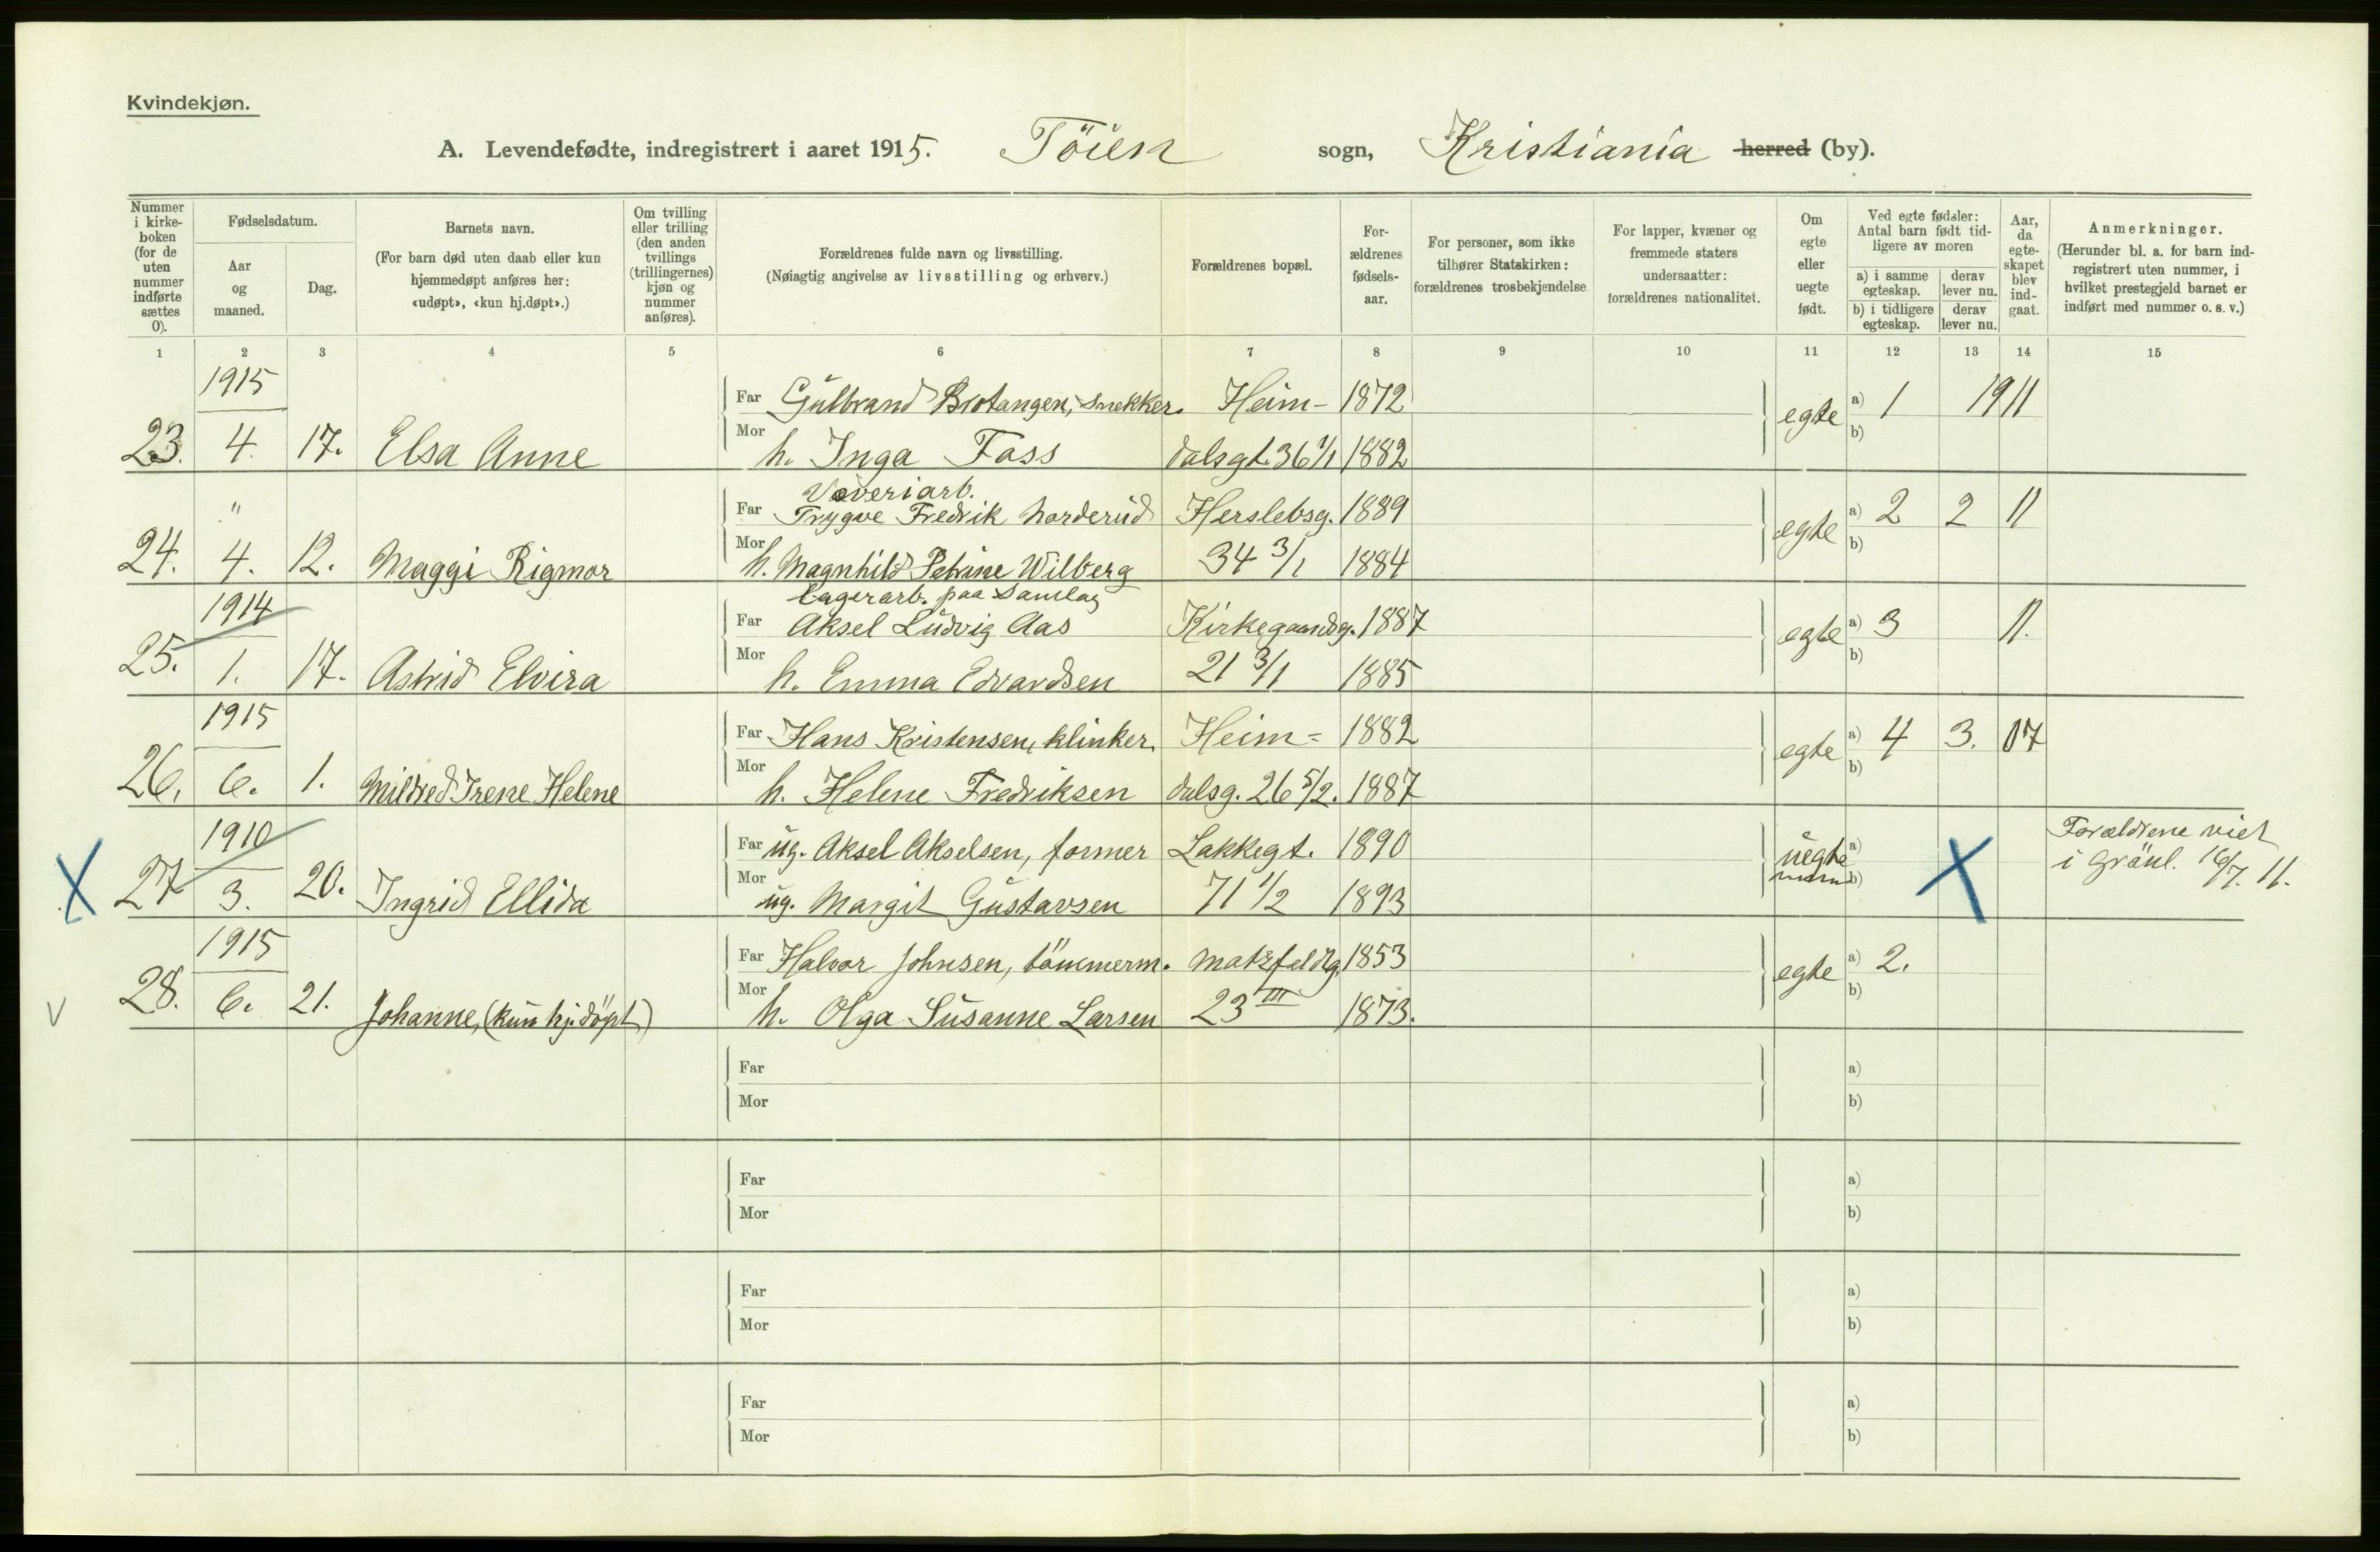 Kvindekjøn.
A. Levendefødte, indregistrert i aaret 1915. Töien sogn, Kristiania herred (by).
Nummer i kirkeboken (for de uten nummer indførte sættes 0).
Fødselsdatum.
Aar og maaned.
Dag.
Barnets navn.
(For barn død uten daab eller kun hjemmedøpt anføres her: «udøpt», «kun hj.døpt».)
Om tvilling eller trilling (den anden tvillings (trillingernes) kjøn og nummer anføres).
Forældrenes fulde navn og livsstilling.
(Nøiagtig angivelse av livsstilling og erhverv.)
Forældrenes bopæl.
Forældrenes fødselsaar.
For personer, som ikke tilhører Statskirken: forældrenes trosbekjendelse
For lapper, kvæner og fremmede staters undersaatter: forældrenes nationalitet.
Om egte eller uegte født.
Ved egte fødsler: Antal barn født tidligere av moren
a) i samme egteskap.
derav lever nu.
b) i tidligere egteskap.
derav lever nu.
Aar, da egteskapet blev indgaat.
Anmerkninger.
(Herunder bl. a. for barn indregistrert uten nummer, i hvilket prestegjeld barnet er indført med nummer o. s. v.)
1 2 3 4 5 6 7 8 9 10 11 12 13 14 15
1915
Far Gulbrand Brotangen, snekker. Heim- 1872 egte a) 1 1911
b)
23. 4. 17. Elsa Anne Mor h. Inga Fass dalsgt. 36 1/1 1882
Væveriarb.
" Far Trygve Fredrik Norderud Herslebsg. 1889 egte a) 2 2 11
b)
24. 4. 12. Maggi Rigmor Mor h. Magnhild Petrine Wilberg 34 3/1 1884
1914 Lagerarb. paa Samlag
Far Aksel Ludvig Aas Kirkegaardsg. 1887 egte a) 3 11.
b)
25. 1. 17. Astrid Elvira Mor h. Emma Edvardsen 21 3/1 1885
1915
Far Hans Kristensen, klinker. Heim= 1882 egte a) 4 3. 07
b)
26. 6. 1. Mildred Irene Helene Mor h. Helene Fredriksen dalsg. 26 5/2. 1887
1910
Far ug. Aksel Akselsen, former Lakkegt. 1890 uegte a) X Forældrene viet
b) i Grönl. 16/7. 11.
X 27 3. 20. Ingrid Ellida Mor ug. Margit Gustavsen 71 1/2 1893
1915
Far Halvor Johnsen, tömmerm. Motzfeldtg. 1853 egte a) 2.
b)
V 28. 6. 21. Johanne, (kun hj.döpt) Mor h. Olga Susanne Larsen 23 III 1873.
Far a)
Mor b)
Far a)
Mor b)
Far a)
Mor b)
Far a)
Mor b)